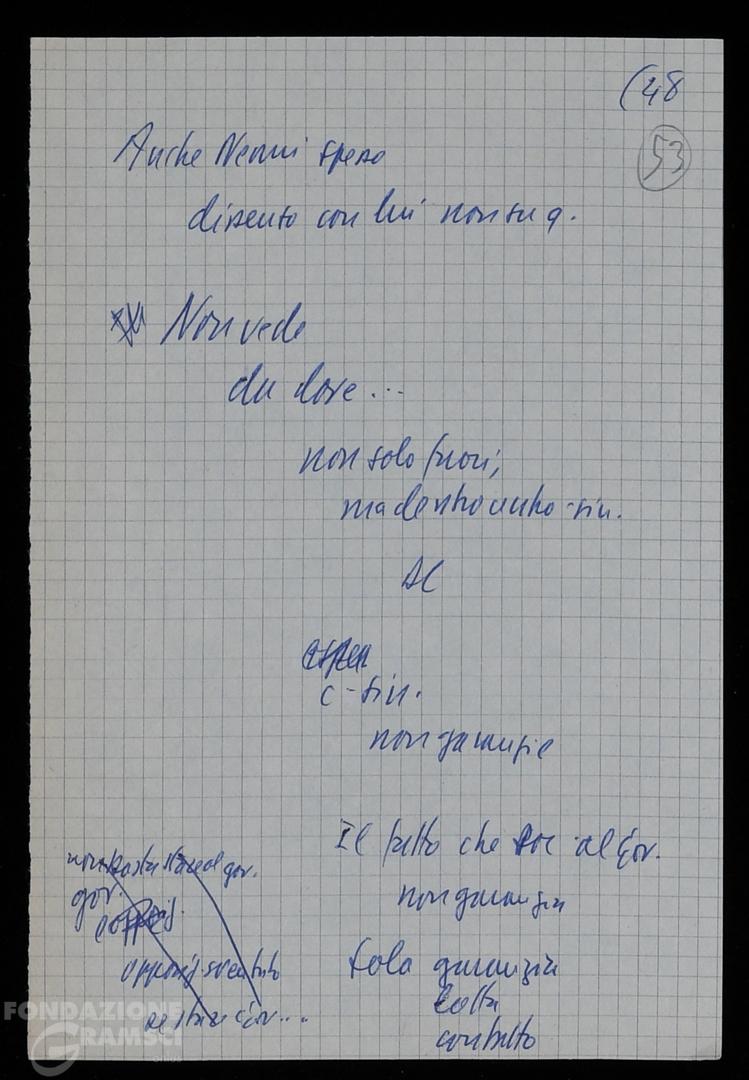 (48
53
Anche Nenni spesso
dissento con lui non su q.
Non vede
da dove...
non solo fuori,
ma dentro centro-sin.
DC
c-sin.
non garanzie
Il fatto che soc al gov.
non garanzia
Sola garanzia
lotta
contratto
non basta stare al gov.
gov.
oppos.
restare gov...
FONDAZIONE
GRAMSCI